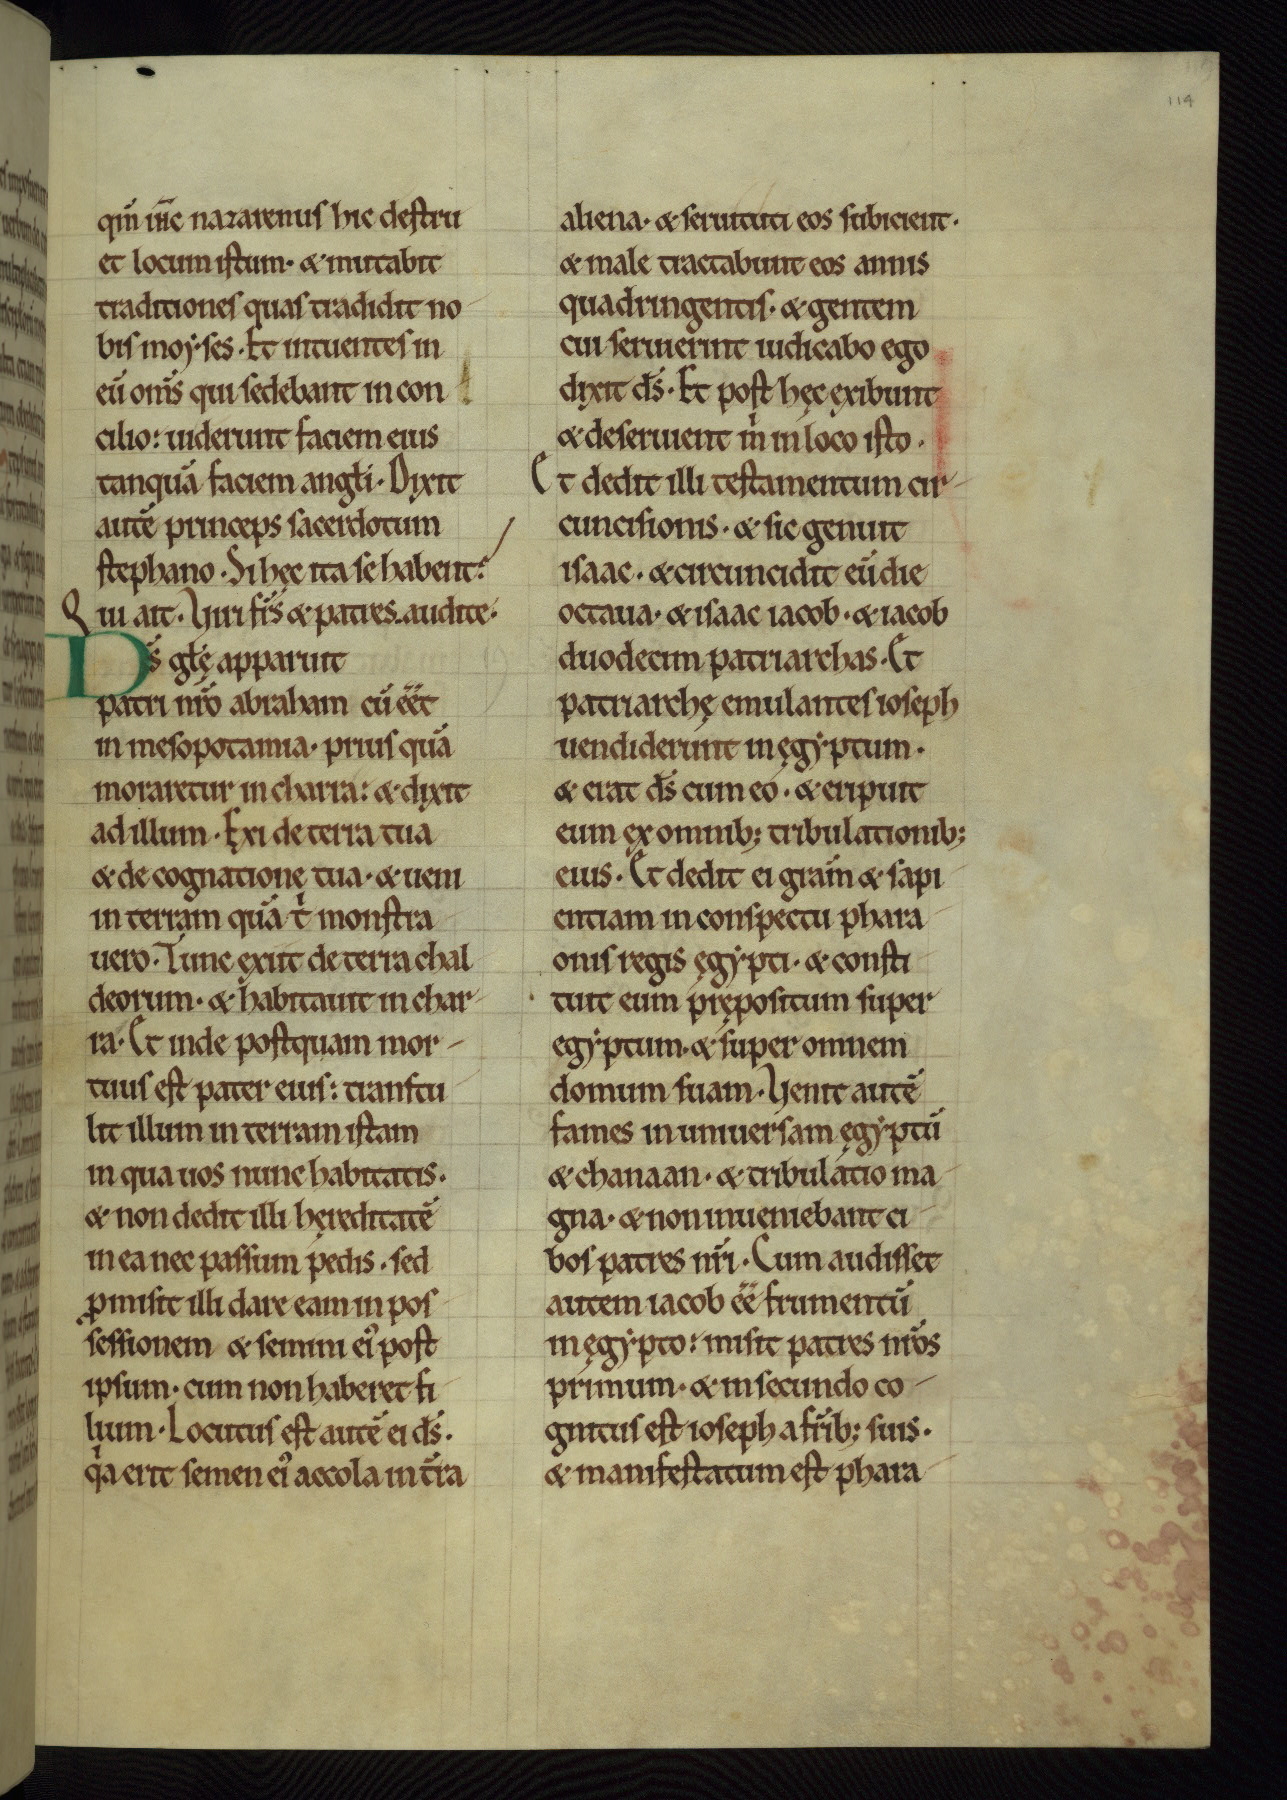 114
qm̄ ihc̄ nazarenus hic destru
et locum istum· & mutabit
traditiones quas tradidit no-
bis moẏses· Et intuentes in
eū om̄s qui sedebant in con
cilio: uiderunt faciem eius
tanquā faciem angłi· Dixit
autē princeps sacerdotum
stephano· Si hęc ita se habent?
Qui ait· Viri fr̄s & patres audite·
Ds̄ głę apparuit
patri nr̄o abraham cū eēt
in mesopotamia· prius quā
moraretur in charra: & dixit
ad illum· Exi de terra tua
& de cognatione tua· & ueni
in terram quā tⁱ monstra-
uero· Tunc exiit de terra chal
deorum· & habitauit in char-
ra· Et inde postquam mor-
tuus est pater eius: transtu-
lit illum in terram istam
in qua uos nunc habitatis·
& non dedit illi hęreditatē
in ea nec passum pedis· sed
ꝓmisit illi dare eam in pos-
sessionem & semini ei᾽ post
ipsum· cum non haberet fi-
lium· Locutus est autē ei ds̄·
qⁱa erit semen ei᾽ accola in tr̄a
aliena· & seruituti eos subicient·
& male tractabunt eos annis
quadringentis· & gentem
cui seruierint iudicabo ego
dixit ds̄· Et post hęc exibunt
& deseruient mⁱ in loco isto·
Et dedit illi testamentum cir-
cuncisionis· & sic genuit
isaac· & circuncidit eū die
octaua· & isaac iacob· & iacob
duodecim patriarchas· Et
patriarchę emulantes ioseph
uendiderunt in ęgẏptum·
& erat ds̄ cum eo· & eripuit
eum ex omnib; tribulationib;
eius· Et dedit ei grām & sapi-
entiam in conspectu phara-
onis regis ęgẏpti· & consti-
tuit eum prępositum super
egẏptum· & super omnem
domum suam· Venit autē
fames in uniuersam ęgẏptū
& chanaan· & tribulatio ma-
gna· & non inueniebant ci-
bos patres nr̄i· Cum audisset
autem iacob eē̄ frumentū
in ęgẏpto: misit patres nr̄os
primum· & in secundo co-
gnitus est ioseph a fr̄ib; suis·
& manifestatum est phara-